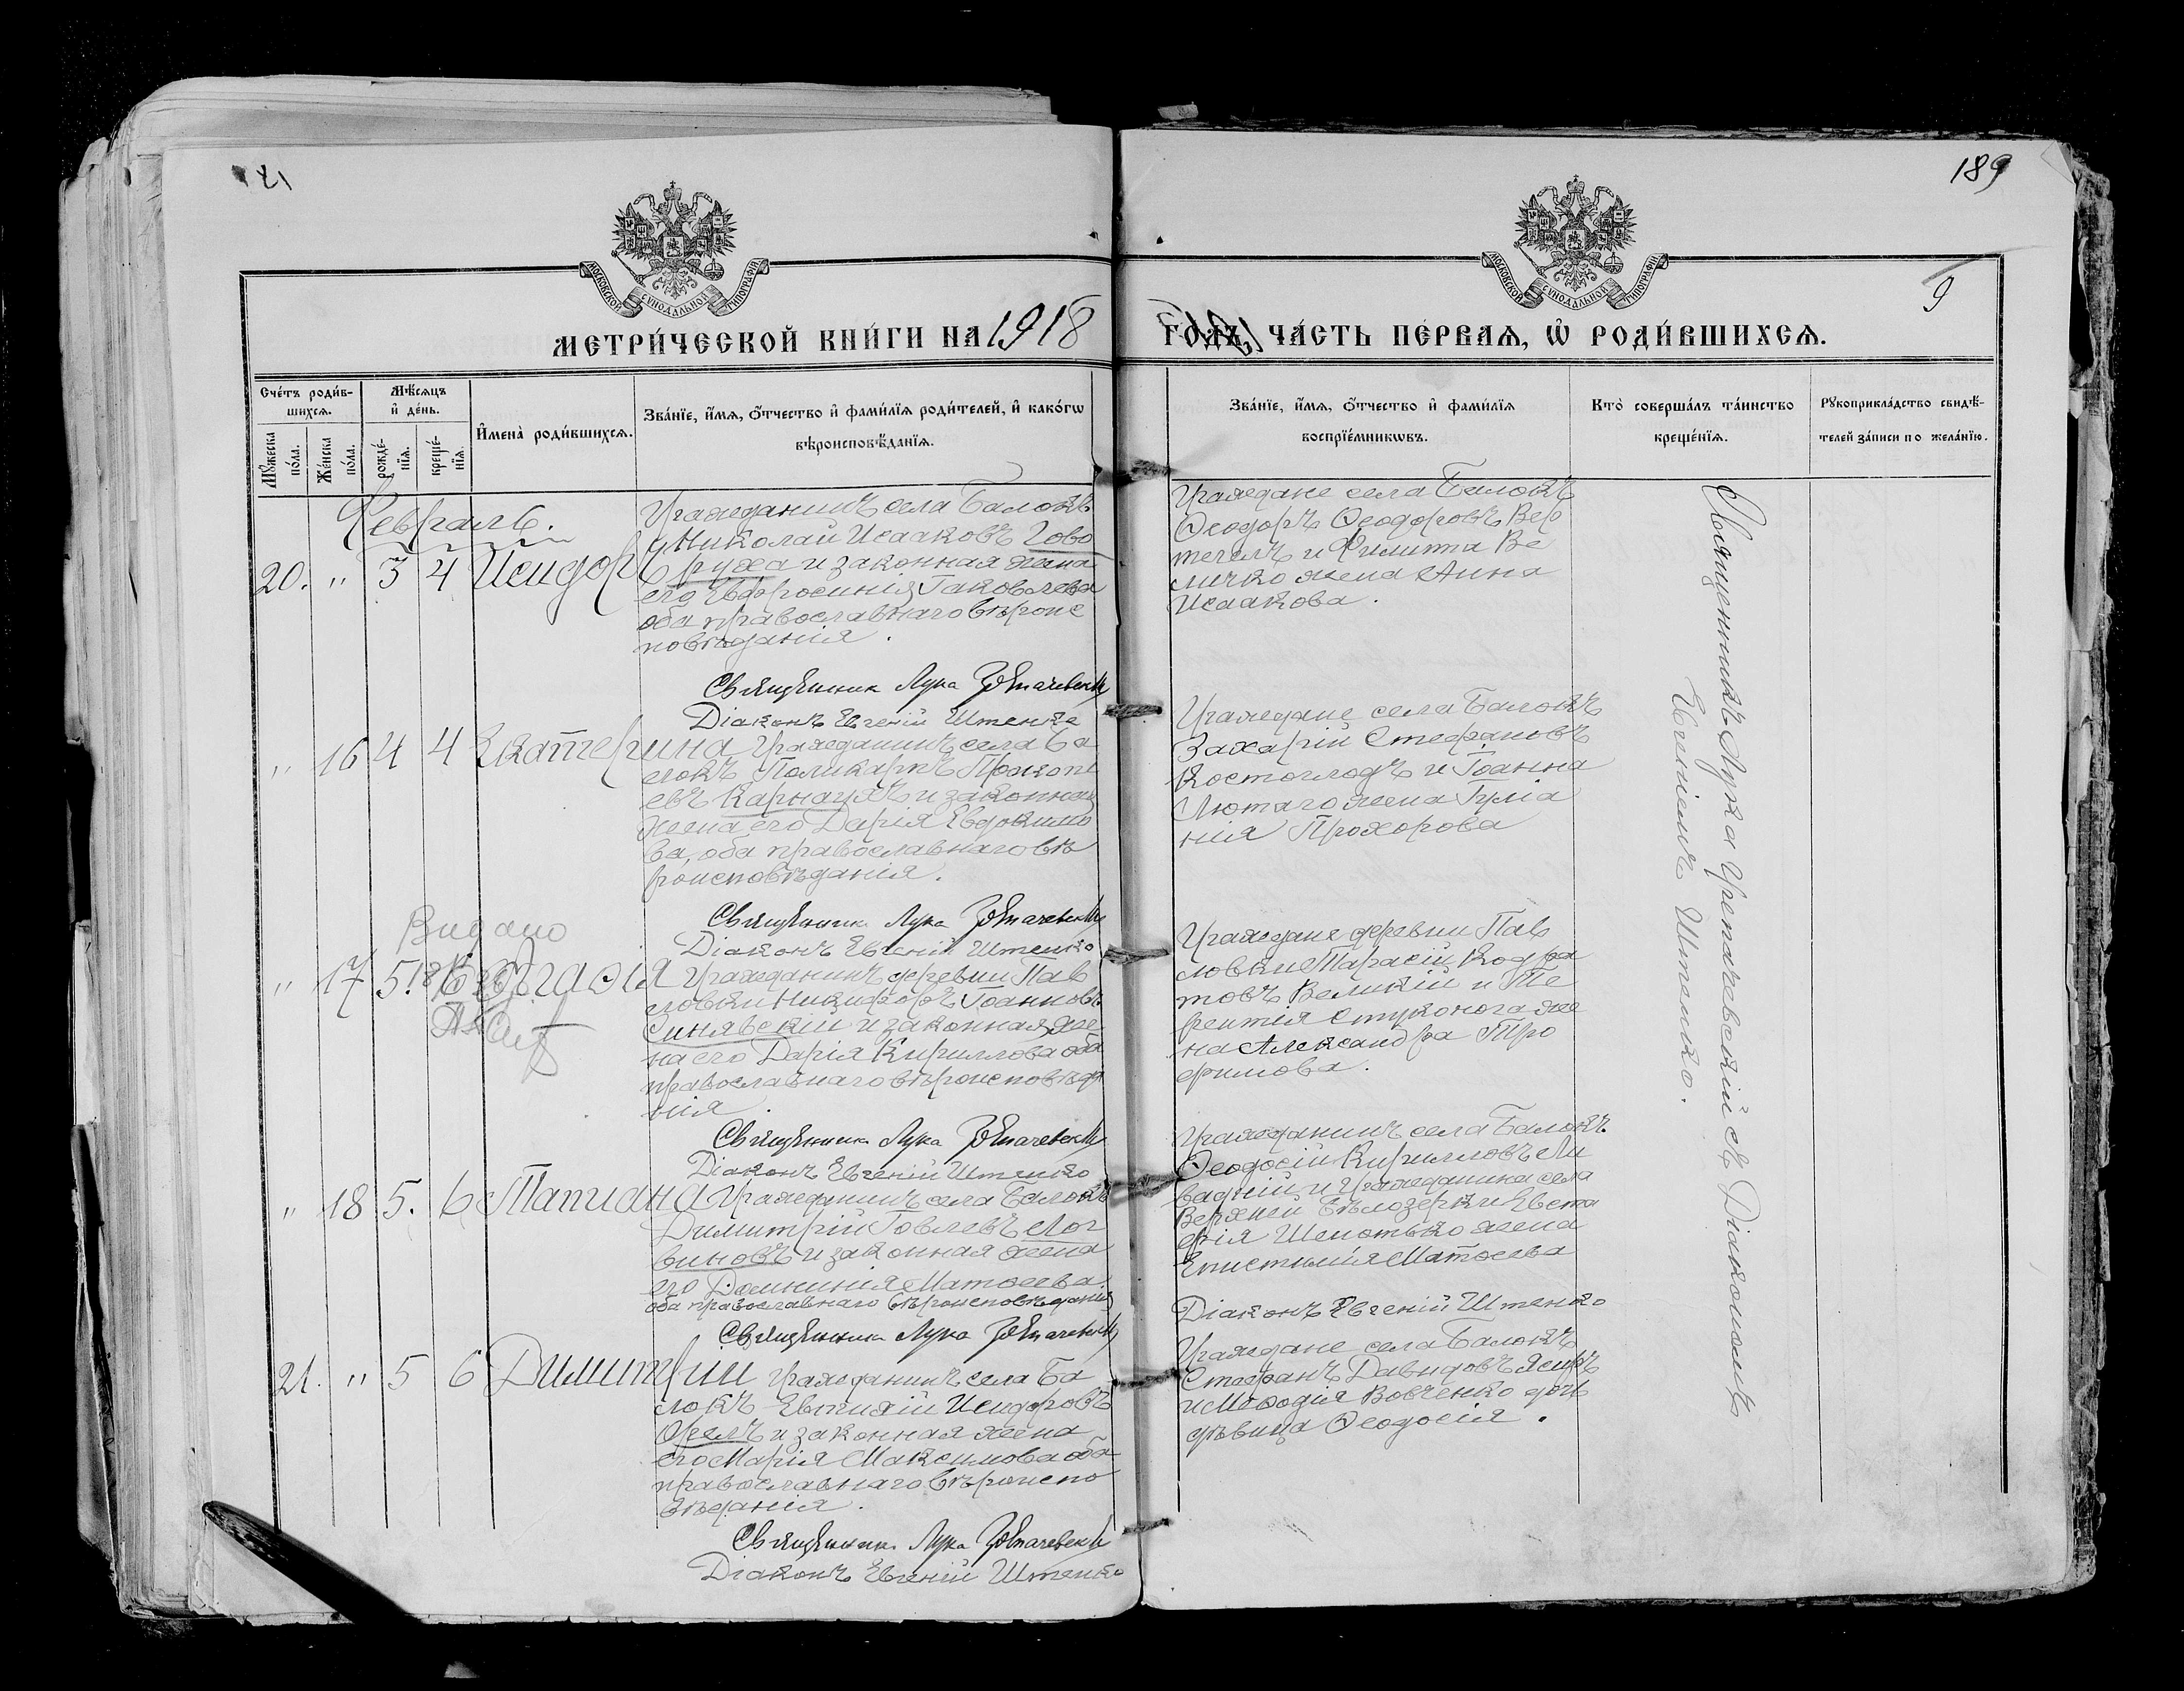 189
9
МОСКОВСКОЙ СѴНОДАЛЬНОЙ ТИПОГРАФІИ
МОСКОВСКОЙ СѴНОДАЛЬНОЙ ТИПОГРАФІИ
МЕТРИ́ЧЕСКОЙ КНИ́ГИ НА 1918 ГОДЪ, ЧА́СТЬ ПЕ́РВАѦ, Ѡ҆ РОДИ́ВШИХСѦ.
Сче́тъ роди́в-
шихсѧ.
Мꙋ́жеска
по́ла.
Же́нска
по́ла.
Мѣ́сѧцъ
и҆ де́нь.
рожде́-
нїѧ.
креще́-
нїѧ.
И҆мена̀ роди́вшихсѧ.
Зва́нїе, и҆́мѧ, ѻ҆́тчество и҆ фами́лїѧ роди́телей, и҆ како́гѡ
вѣроисповѣ́данїѧ.
Зва́нїе, и҆́мѧ, ѻ҆́тчество и҆ фами́лїѧ
воспрїе́мникѡвъ.
Кто̀ соверша́лъ та́инство
креще́нїѧ.
Рꙋкоприкла́дство свидѣ́-
телей за́писи по жела́нїю.
Февраль.
20. " 3 4 Исидоръ
Гражданинъ села Балокъ
Николай Исааковъ Гово
руха и законная жена
его Евфросинія Іаковлева
оба православнаго вѣроис
повѣданія.
Священник Лука
Діаконъ Евгеній Штенко
Граждане села Балокъ
Ѳеодоръ Ѳеодоровъ Вер
течелъ и Филиппа Ве
личко жена Анна
Исаакова.
" 16 4 4 Екатерина
Гражданинъ села Ба
локъ Поликарпъ Прокопі
евъ Карнаухъ и законная
жена его Дарія Евдокимо
ва, оба православнаго вѣ
роисповѣданія.
Священник Лука
Діаконъ Евгеній Штенко
Граждане села Балокъ
Захарій Стефановъ
Костоглодъ и Іоанна
Лютаго жена Іуліа
нія Прохорова
Видано
" 17 5. 6
Гражданинъ деревни Пав
ловки Никифоръ Іоанновъ
Синявскій и законная же
на его Дарія Кириллова оба
православнаго вѣроисповѣда
нія.
Священник Лука
Діаконъ Евгеній Штенко
Граждане деревни Пав
ловки Тарасій Кодра
товъ Великій и Те
рентія Стуконога же
на Александра Тро
фимова.
" 18 5. 6 Татиана
Гражданинъ села Балокъ
Димитрій Іовлевъ Лог
виновъ и законная жена
его Домникія Матѳеева
оба православнаго вѣроисповѣданія
Священник Лука
Гражданинъ села Балокъ
Ѳеодосій Кирилловъ Ли
вадній и гражданина села
Верхней Бѣлозерки Евста
фія Шепотько жена
Епистимія Матѳеева
Діаконъ Евгеній Штенко
21. " 5 6 Димитрій
Гражданинъ села Ба
локъ Евтихій Исидоровъ
Орелъ и законная жена
его Марія Максимова оба
православнаго вѣроиспо
вѣданія.
Священник Лука
Діаконъ Евгеній Штенко
Граждане села Балокъ
Стефанъ Давидовъ
и Меѳодія Вовченко дочь
дѣвица Ѳеодосія.
Священникъ Лука съ Діакономъ
Евгеніемъ Штенко.